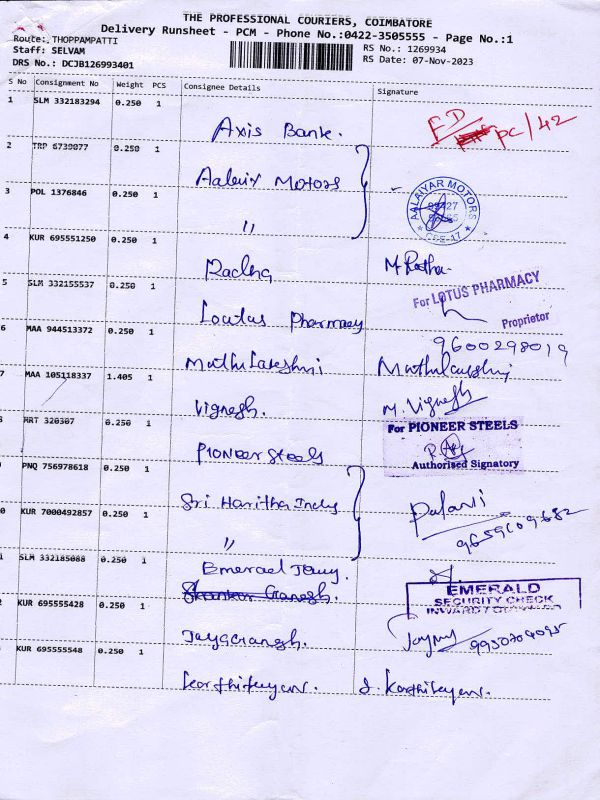 THE PROFESSIONAL COURIERS, COIMBATORE
Delivery Runsheet - PCM - Phone No.:0422-3505555 - Page No.:1
Route: THOPPAMPATTI
Staff: SELVAM
DRS No.: DCJB126993401
RS No.: 1269934
RS Date: 07-Nov-2023
S No Consignment No Weight PCS Consignee Details Signature
1 SLM 332183294 0.250 1
Axis Bank.
PC/42
2 TRP 6739077 0.250 1
Aalaiy Motors
3 POL 1376846 0.250 1
AALAIYAR MOTORS
CBE-17
"
4 KUR 695551250 0.250 1
Radha
M. Radha
5 SLM 332155537 0.250 1
For LOTUS PHARMACY
Proprietor
Loutus Pharmacy
9600298019
6 MAA 944513372 0.250 1
Muthulakshmi
7 MAA 105118337 1.405 1
Vignesh.
M. Vignesh
MRT 320307 0.250 1
For PIONEER STEELS
Authorised Signatory
Pioneer Steels
PNQ 756978618 0.250 1
Sri Haritha Indus
Palani
9659609682
0 KUR 7000492857 0.250 1
"
1 SLM 332185088 0.250 1
Emerael Jewy.
Shankar Ganesh.
EMERALD
SECURITY CHECK
2 KUR 695555428 0.250 1
Jayaganesh.
9950704095
KUR 695555548 0.250 1
Karthikeyan.
J. Karthikeyan.